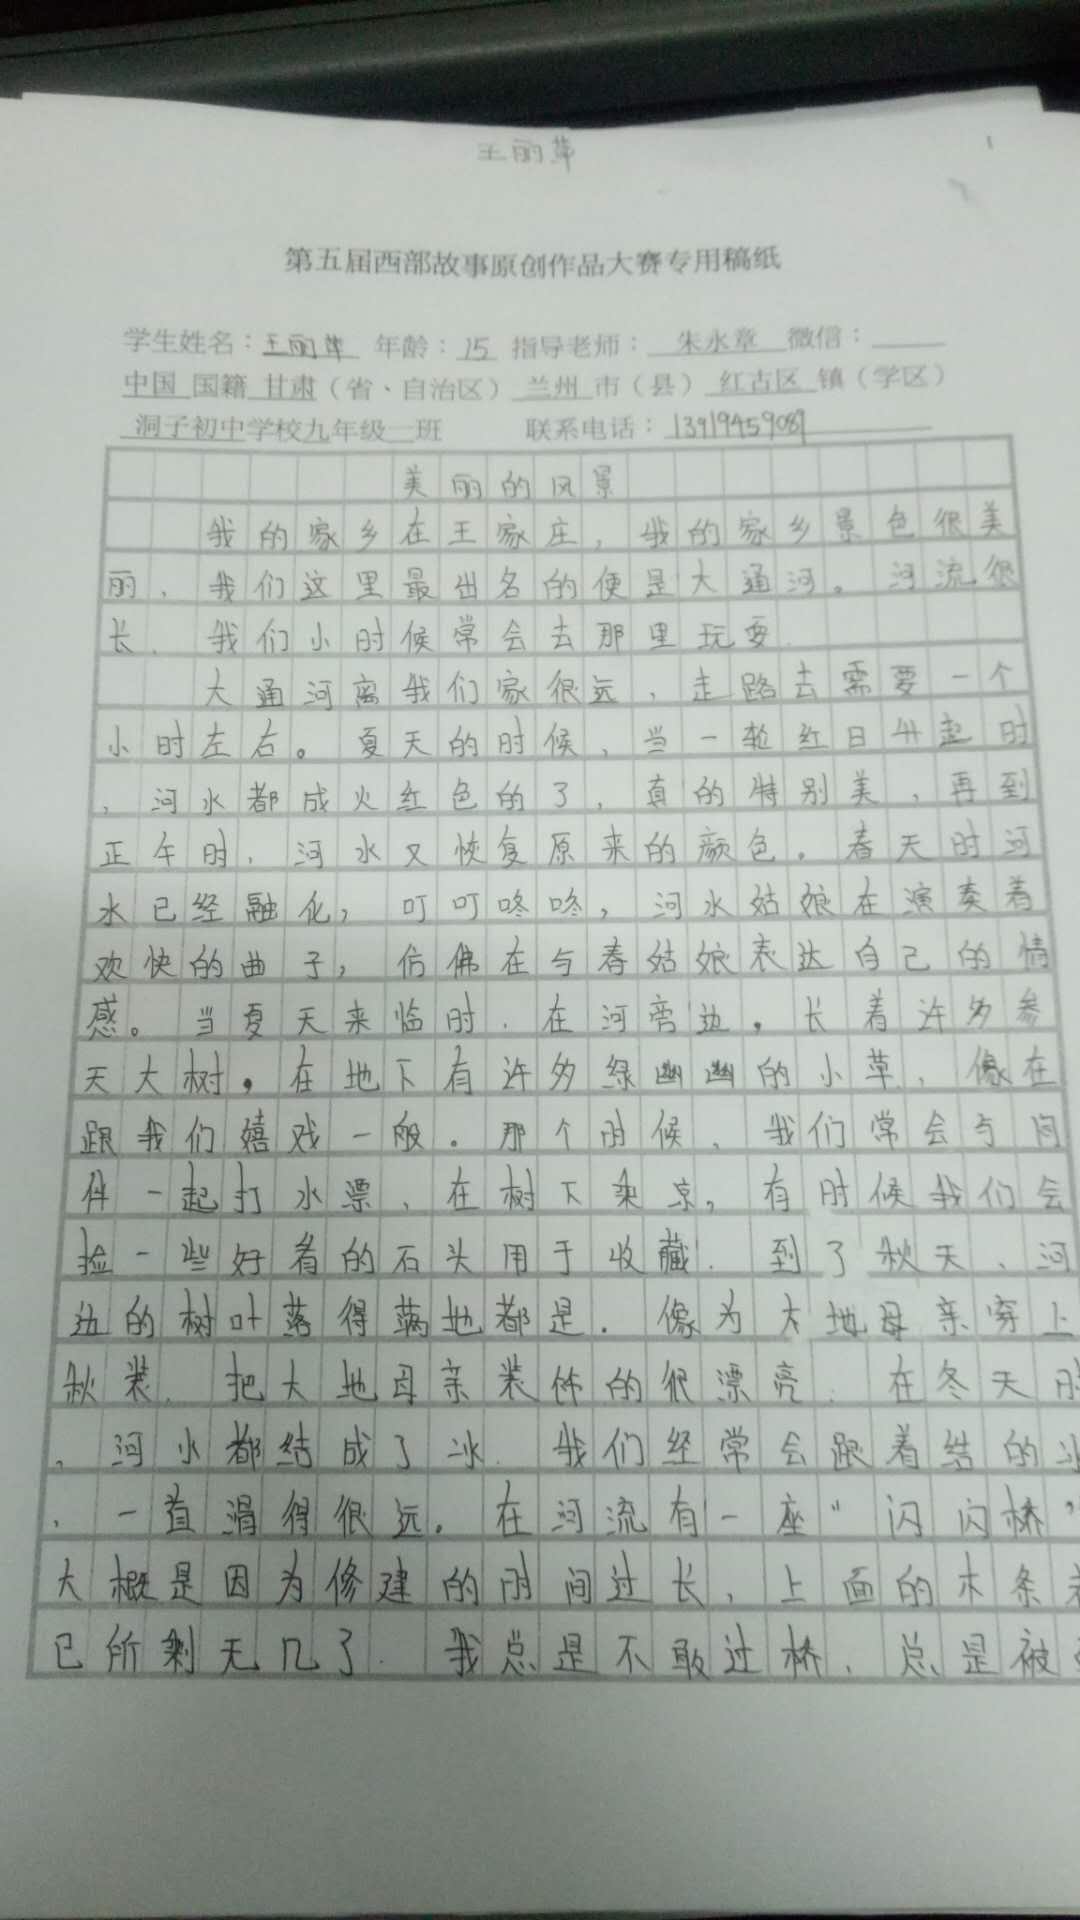 王丽萍
1
第五届西部故事原创作品大赛专用稿纸
学生姓名：王丽萍 年龄：15 指导老师： 朱永章 微信：
中国 国籍 甘肃（省、自治区） 兰州 市（县） 红古区 镇（学区）
洞子初中学校九年级一班 联系电话：13919459089
美丽的风景
我的家乡在王家庄，我的家乡景色很美
丽，我们这里最出名的便是大通河。河流很
长，我们小时候常会去那里玩耍.
大通河离我们家很远，走路去需要一个
小时左右。夏天的时候，当一轮红日升起时
，河水都成火红色的了，真的特别美，再到
正午时，河水又恢复原来的颜色。春天时河
水已经融化，叮叮咚咚，河水姑娘在演奏着
欢快的曲子，仿佛在与春姑娘表达自己的情
感。当夏天来临时，在河旁边，长着许多参
天大树，在地下有许多绿幽幽的小草，像在
跟我们嬉戏一般。那个时候，我们常会与同
伴一起打水漂，在树下乘凉，有时候我们会
捡一些好看的石头用于收藏.到了秋天，河
边的树叶落得满地都是.像为大地母亲穿上
秋装，把大地母亲装饰的很漂亮.在冬天时
，河水都结成了冰.我们经常会跟着结的冰
，一直滑得很远。在河流有一座“闪闪桥”
大概是因为修建的时间过长，上面的木条
已所剩无几了.我总是不敢过桥，总是被